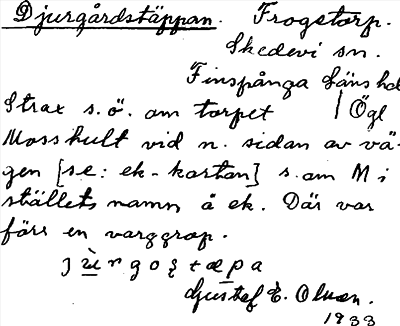 Djurgårdstäppan. Frogstorp.
Skedevi sn.
Finspånga läns hd
Strax s.ö. om torpet / Ögl
Mosshult vid n. sidan av vä-
gen [se: ek-kartan] s. om M i
ställets namn å ek. Där var
förr en varggrop.
Gustaf E. Olsson.
1933